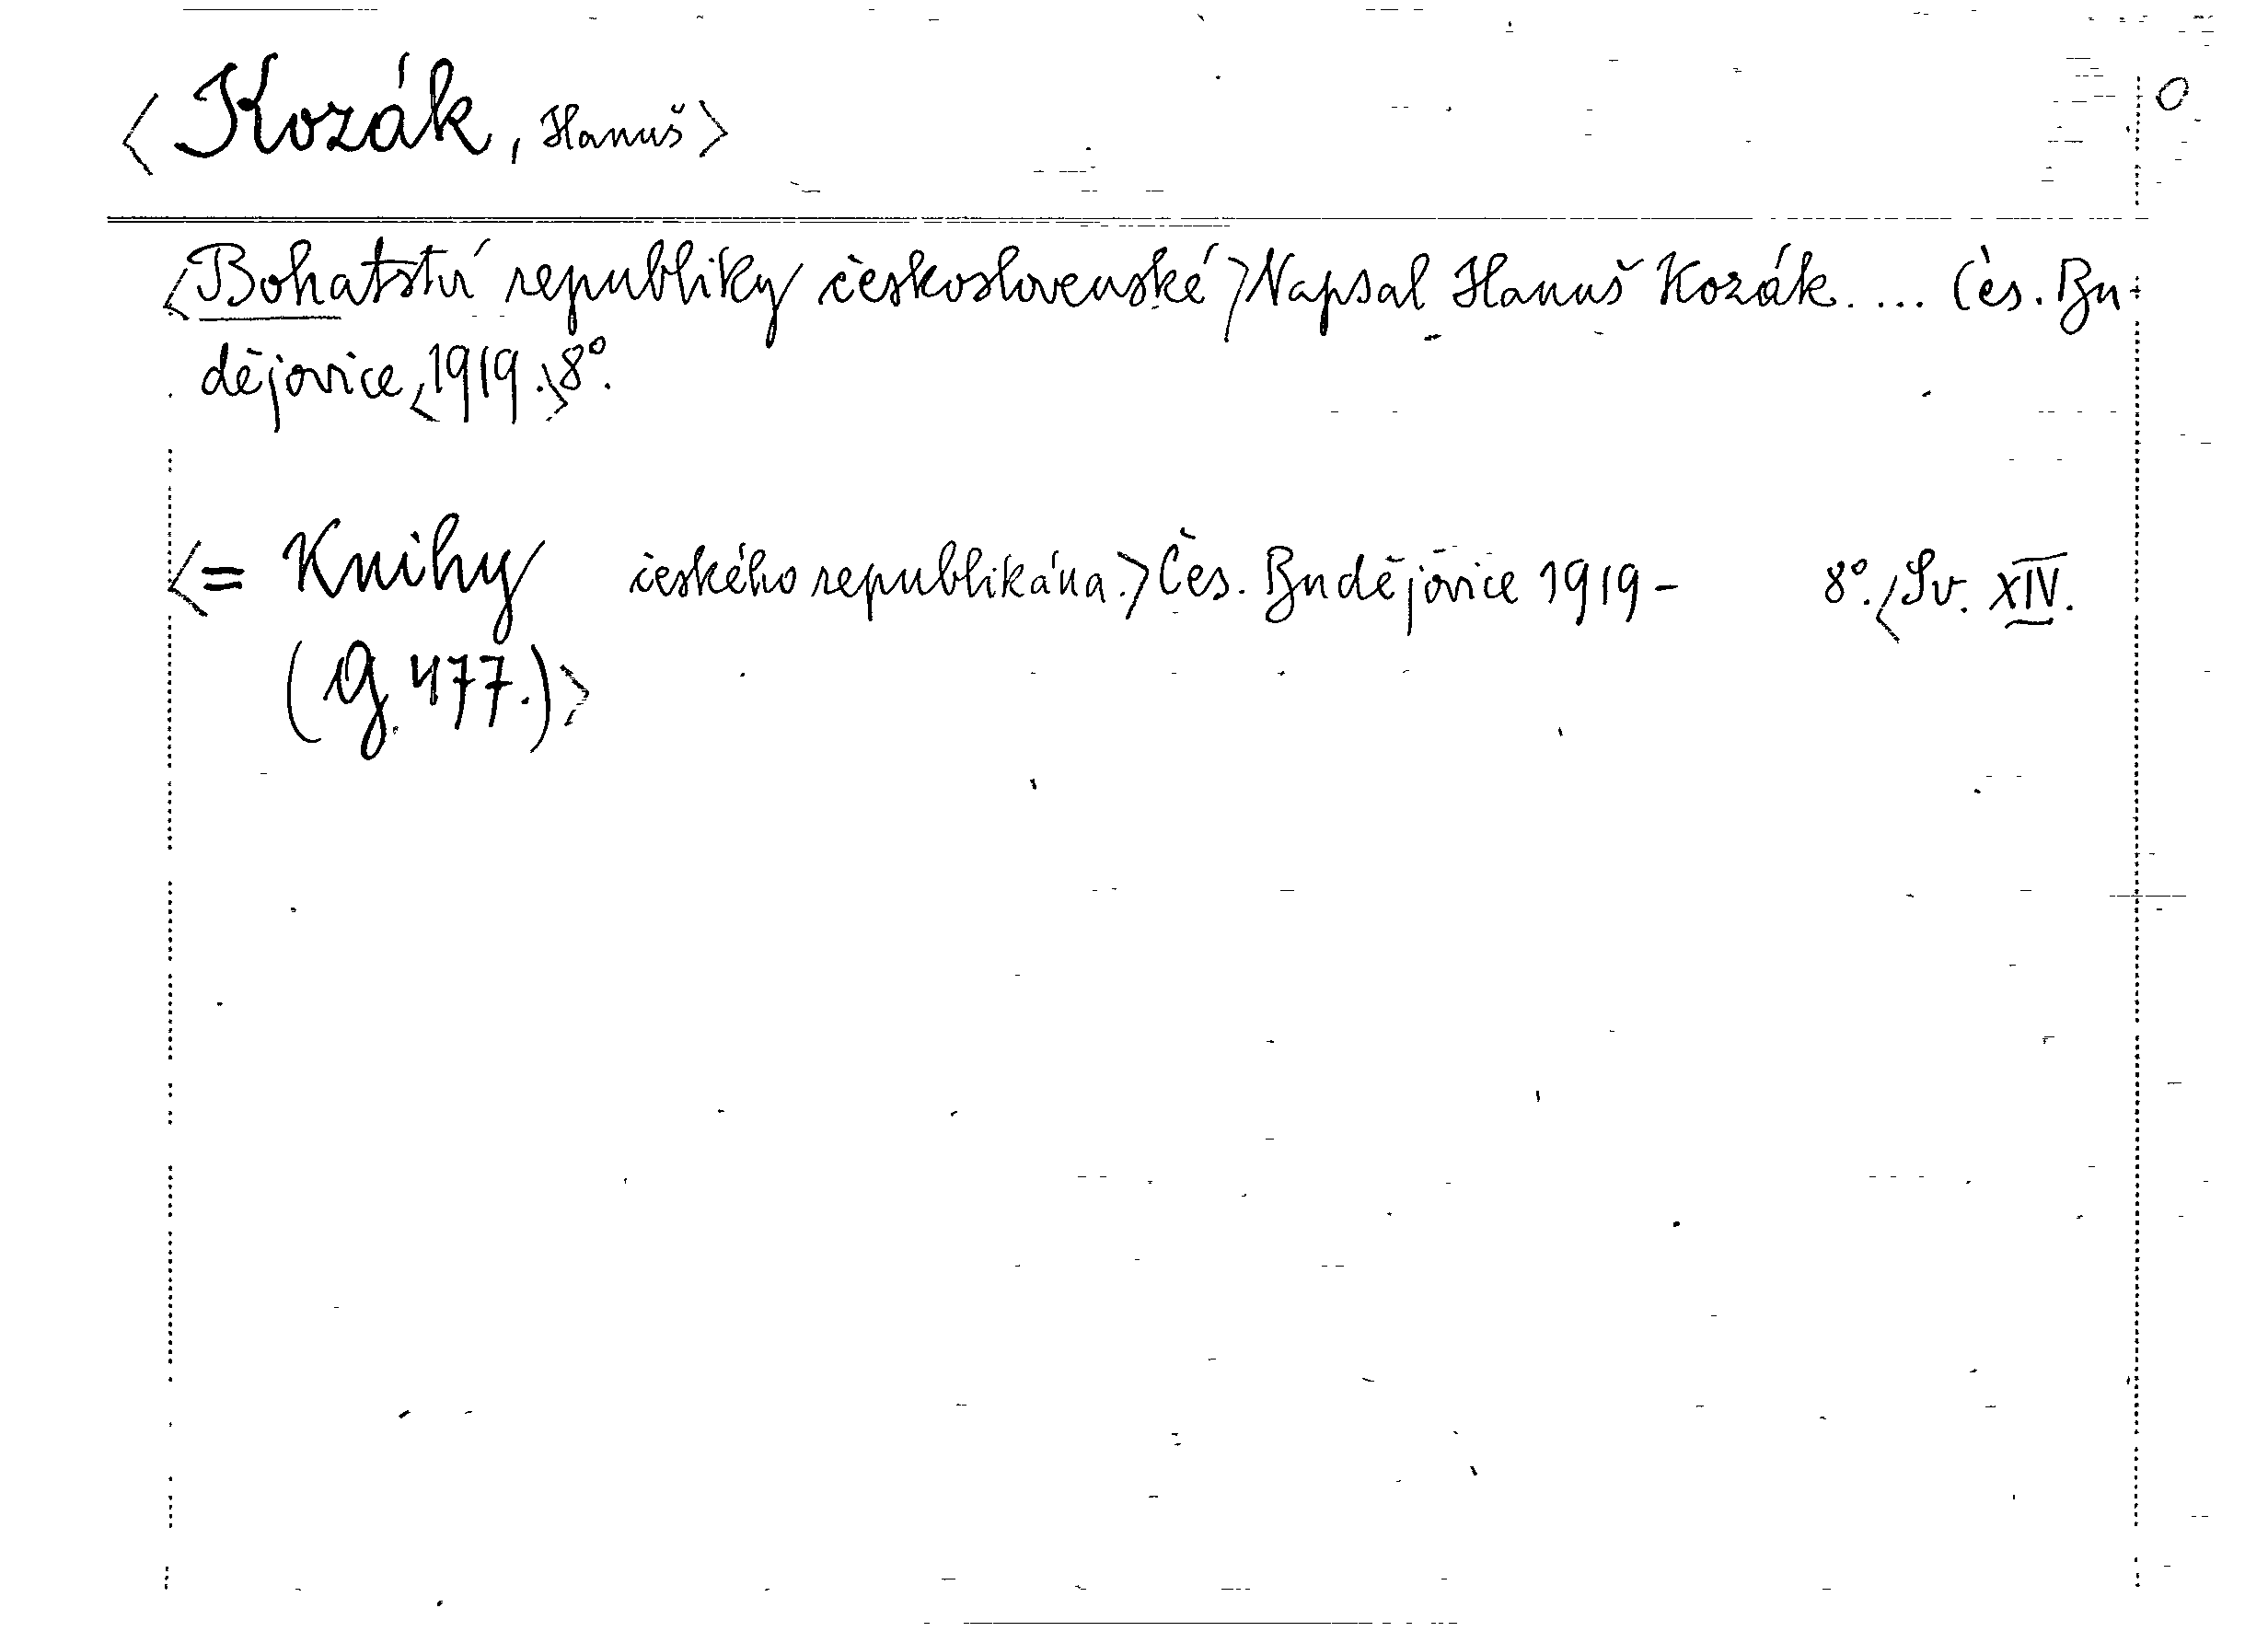 <Kozák, Hanuš>
O
<Bohatství republiky československé> Napsal Hanuš Kozák.... Čes. Bu-
dějovice <1919.> 8°.
<= Knihy českého republikána.> Čes. Budějovice 1919 - 8°. <Sv. XIV.
(G. 477.)>